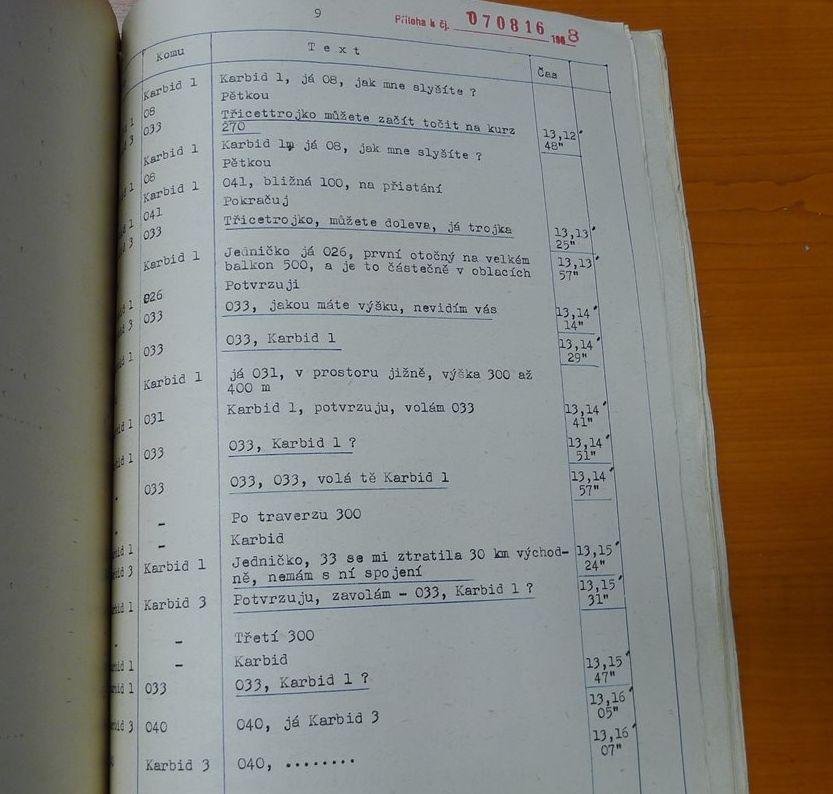 9
Příloha k čj. 070816 1968
Komu Text Čas
Karbid 1 Karbid 1, já 08, jak mne slyšíte ?
08 Pětkou
033 Třicettrojko můžete začít točit na kurz
270 13,12'
48"
Karbid 1 Karbid 1, já 08, jak mne slyšíte ?
08 Pětkou
Karbid 1 041, bližná 100, na přistání
041 Pokračuj
033 Třicetrojko, můžete doleva, já trojka 13,13'
25"
Karbid 1 Jedničko já 026, první otočný na velkém 13,13'
balkon 500, a je to částečně v oblacích 57"
026 Potvrzuji
033 033, jakou máte výšku, nevidím vás 13,14'
14"
033 033, Karbid 1 13,14'
29"
Karbid 1 já 031, v prostoru jižně, výška 300 až
400 m
031 Karbid 1, potvrzuju, volám 033 13,14'
41"
033 033, Karbid 1 ? 13,14'
51"
033 033, 033, volá tě Karbid 1 13,14'
57"
- Po traverzu 300
- Karbid
Karbid 1 Jedničko, 33 se mi ztratila 30 km východ- 13,15'
ně, nemám s ní spojení 24"
Karbid 3 Potvrzuju, zavolám - 033, Karbid 1 ? 13,15'
31"
- Třetí 300
- Karbid
033 033, Karbid 1 ? 13,15'
47"
040 040, já Karbid 3 13,16'
05"
Karbid 3 040, ........ 13,16'
07"